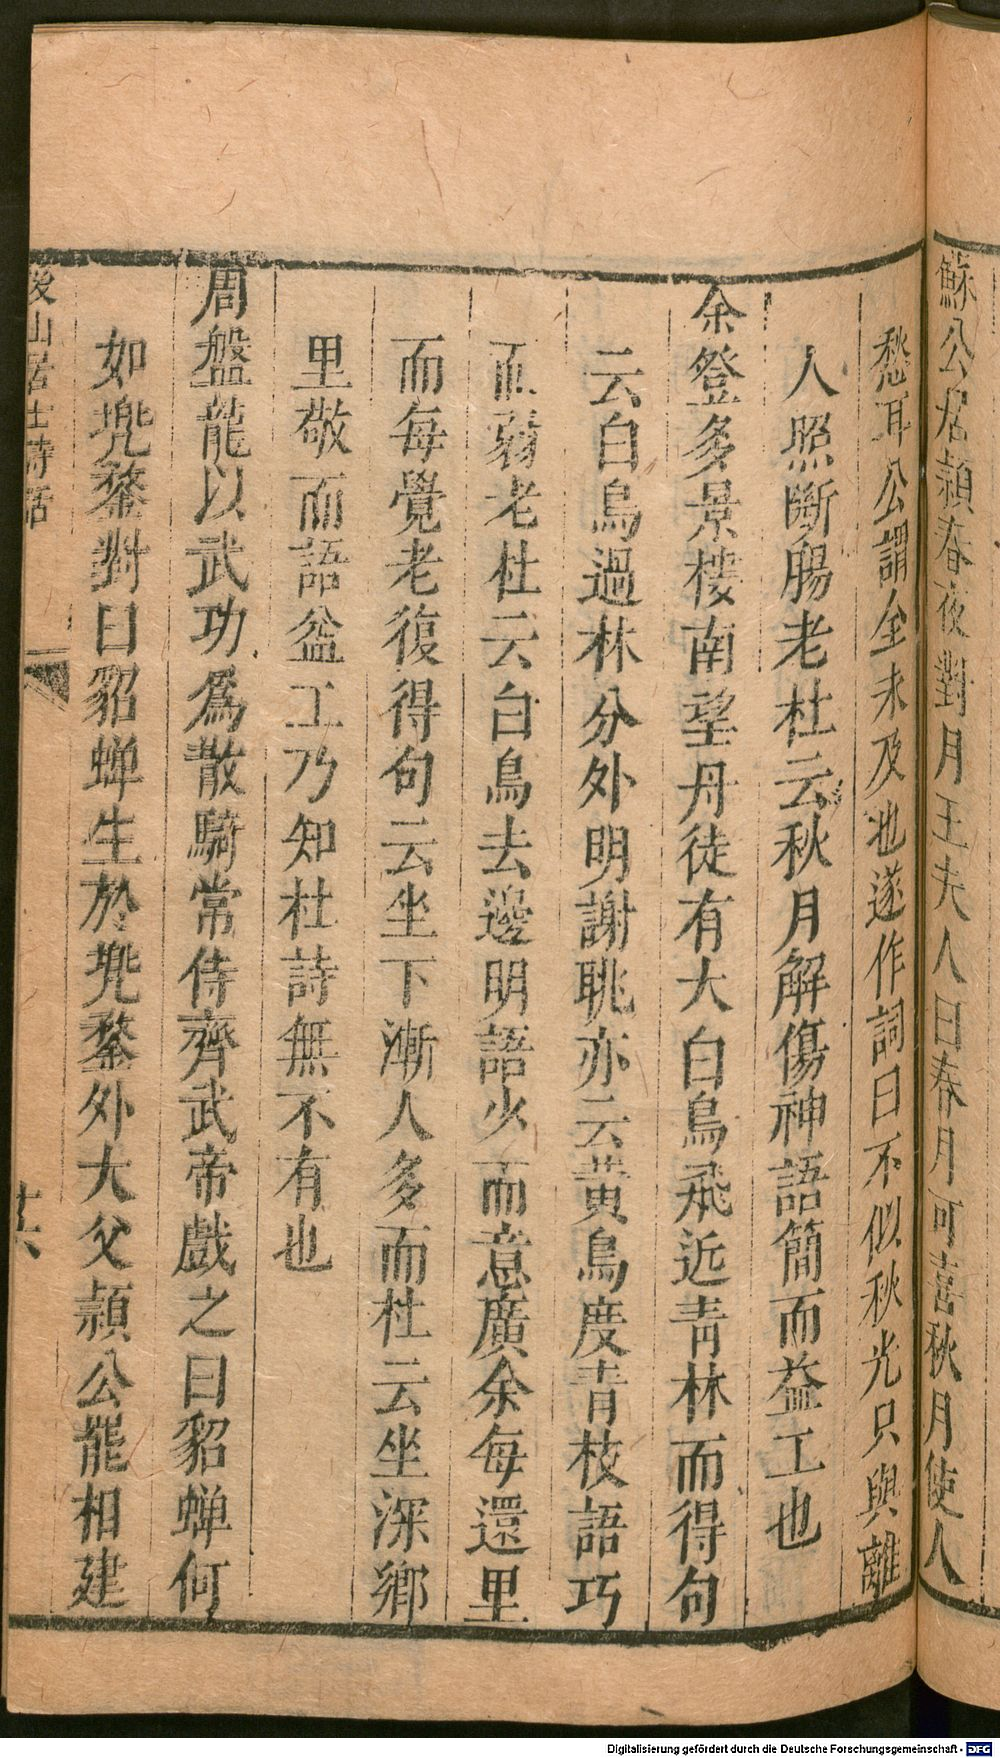 蘇公居潁春夜對月王夫人曰春月可喜秋月使人
愁耳公謂全未及也遂作詞曰不似秋光只與離
人照斷腸老杜云秋月解傷神語簡而益工也
余登多景樓南望丹徒有大白鳥飛近青林而得句
云白鳥過林分外明謝朓亦云黃鳥度青枝語巧
而弱老杜云白鳥去邊明語少而意廣余每還里
而每覺老復得句云坐下漸人多而杜云坐深鄉
里敬而語益工乃知杜詩無不有也
周盤龍以武功爲散騎常侍齊武帝戲之曰貂蟬何
如兠鍪對曰貂蟬生於兠鍪外大父潁公罷相建
後山居士詩話
十六
Digitalisierung gefördert durch die Deutsche Forschungsgemeinschaft - DFG